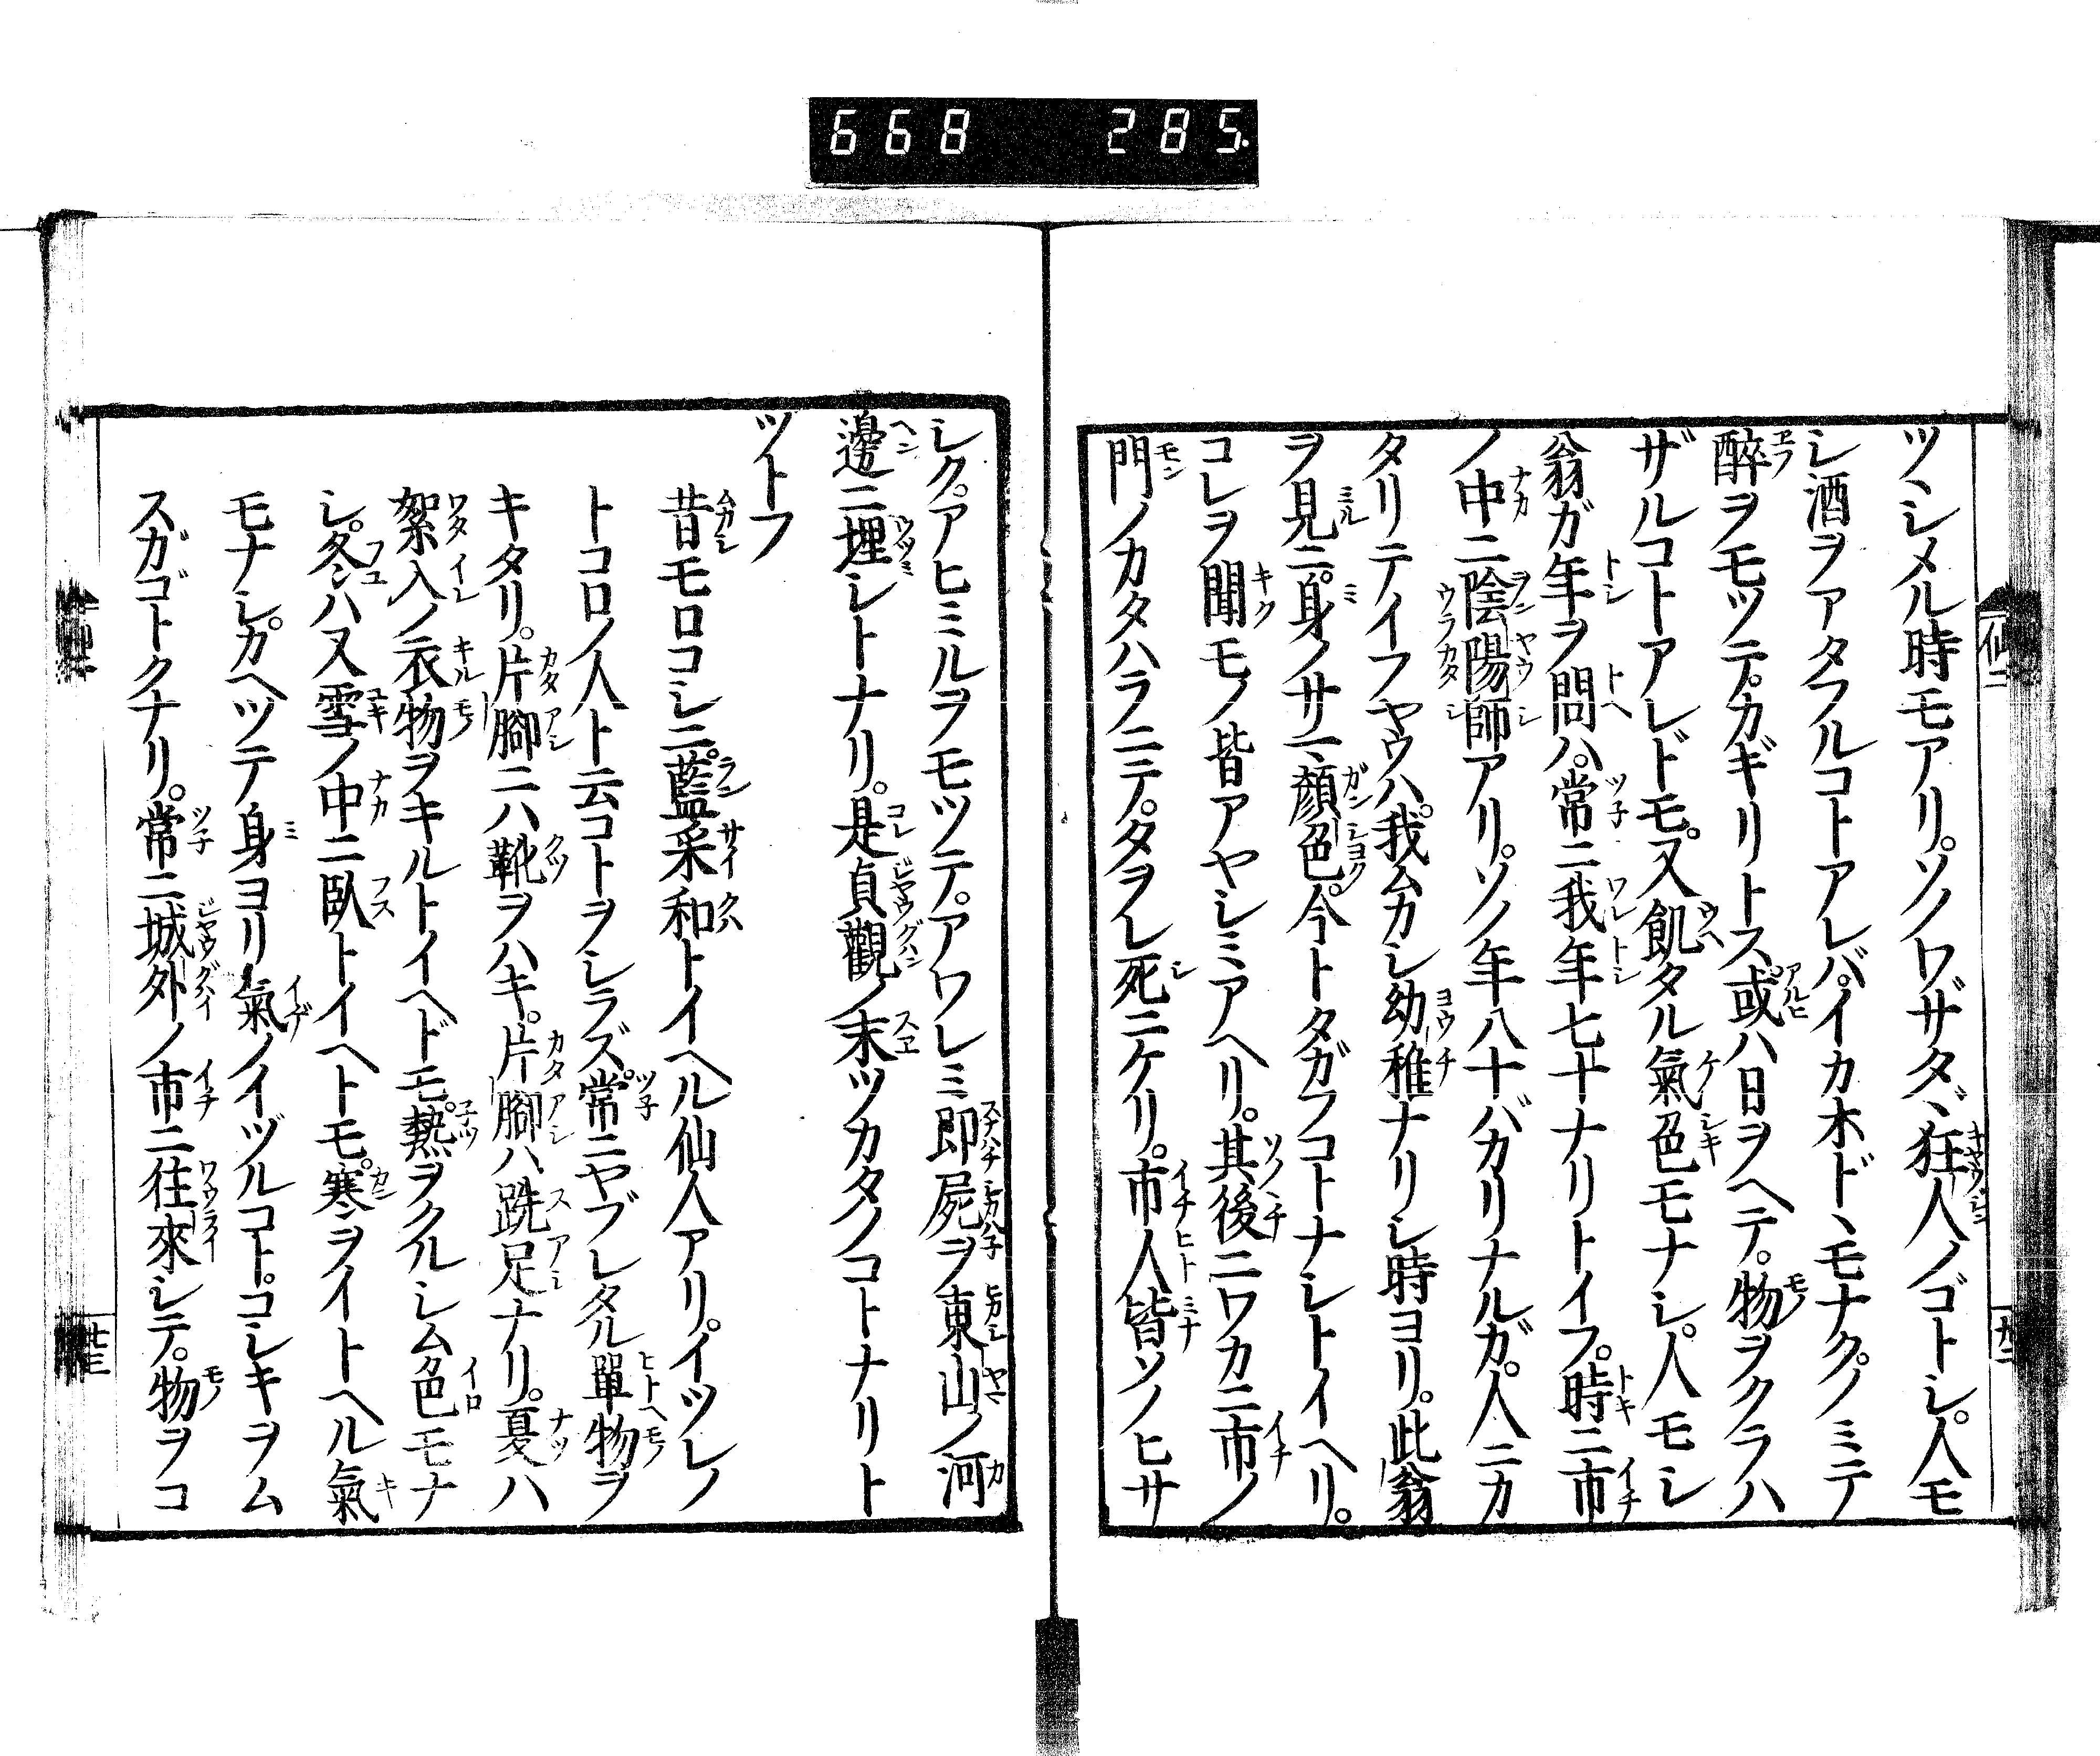 668 285.
ツヽシメル時モアリ。ソノワザタヾ狂人ノゴトシ。人モ
シ酒ヲアタフルコトアレバ。イカホドヽモナク。ノミテ
醉ヲモツテ。カギリトス。或ハ日ヲヘテ。物ヲクラハ
ザルコトアレドモ。又飢タル氣色モナシ。人モシ
翁ガ年ヲ問ハ。常ニ我年七十ナリトイフ。時ニ市
ノ中ニ陰陽師アリ。ソノ年八十バカリナルガ。人ニカ
タリテイフヤウハ。我ムカシ幼稚ナリシ時ヨリ。此翁
ヲ見ニ。身ノサマ。顏色。今トタガフコトナシトイヘリ。
コレヲ聞モノ皆アヤシミアヘリ。其後ニワカニ市ノ
門ノカタハラニテ。タヲレ死ニケリ。市人皆ソノヒサ
シク。アヒミルヲモツテ。アワレミ即屍ヲ東山ノ河
邊ニ埋シトナリ。是貞觀ノ末ツカタノコトナリト
ヅトフ
昔モロコシニ。藍采和トイヘル仙人アリ。イツレノ
トコロノ人ト云コトヲシラズ。常ニヤブレタル單物ヲ
キタリ。片腳ニハ靴ヲハキ。片腳ハ跣足ナリ。夏ハ
絮入ノ衣物ヲキルトイヘドモ。熱ヲクルシム色モナ
シ。冬ハ又雪ノ中ニ臥トイヘトモ。寒ヲイトヘル氣
モナシ。カヘツテ身ヨリ氣ノイヅルコト。コシキヲム
スガゴトクナリ。常ニ城外ノ市ニ往來シテ。物ヲコ